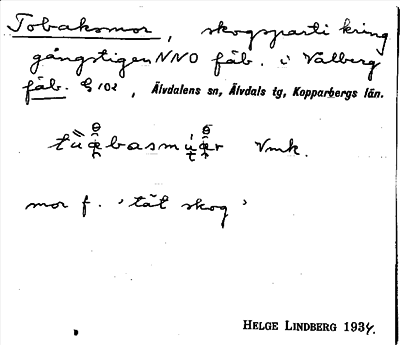 Tobaksmor, skogsparti kring
gångstigen NNO fäb. i Valberg
fäb. G 102, Älvdalens sn, Älvdals tg, Kopparbergs län.
Vmk.
mor f. 'tät skog'
HELGE LINDBERG 1934.